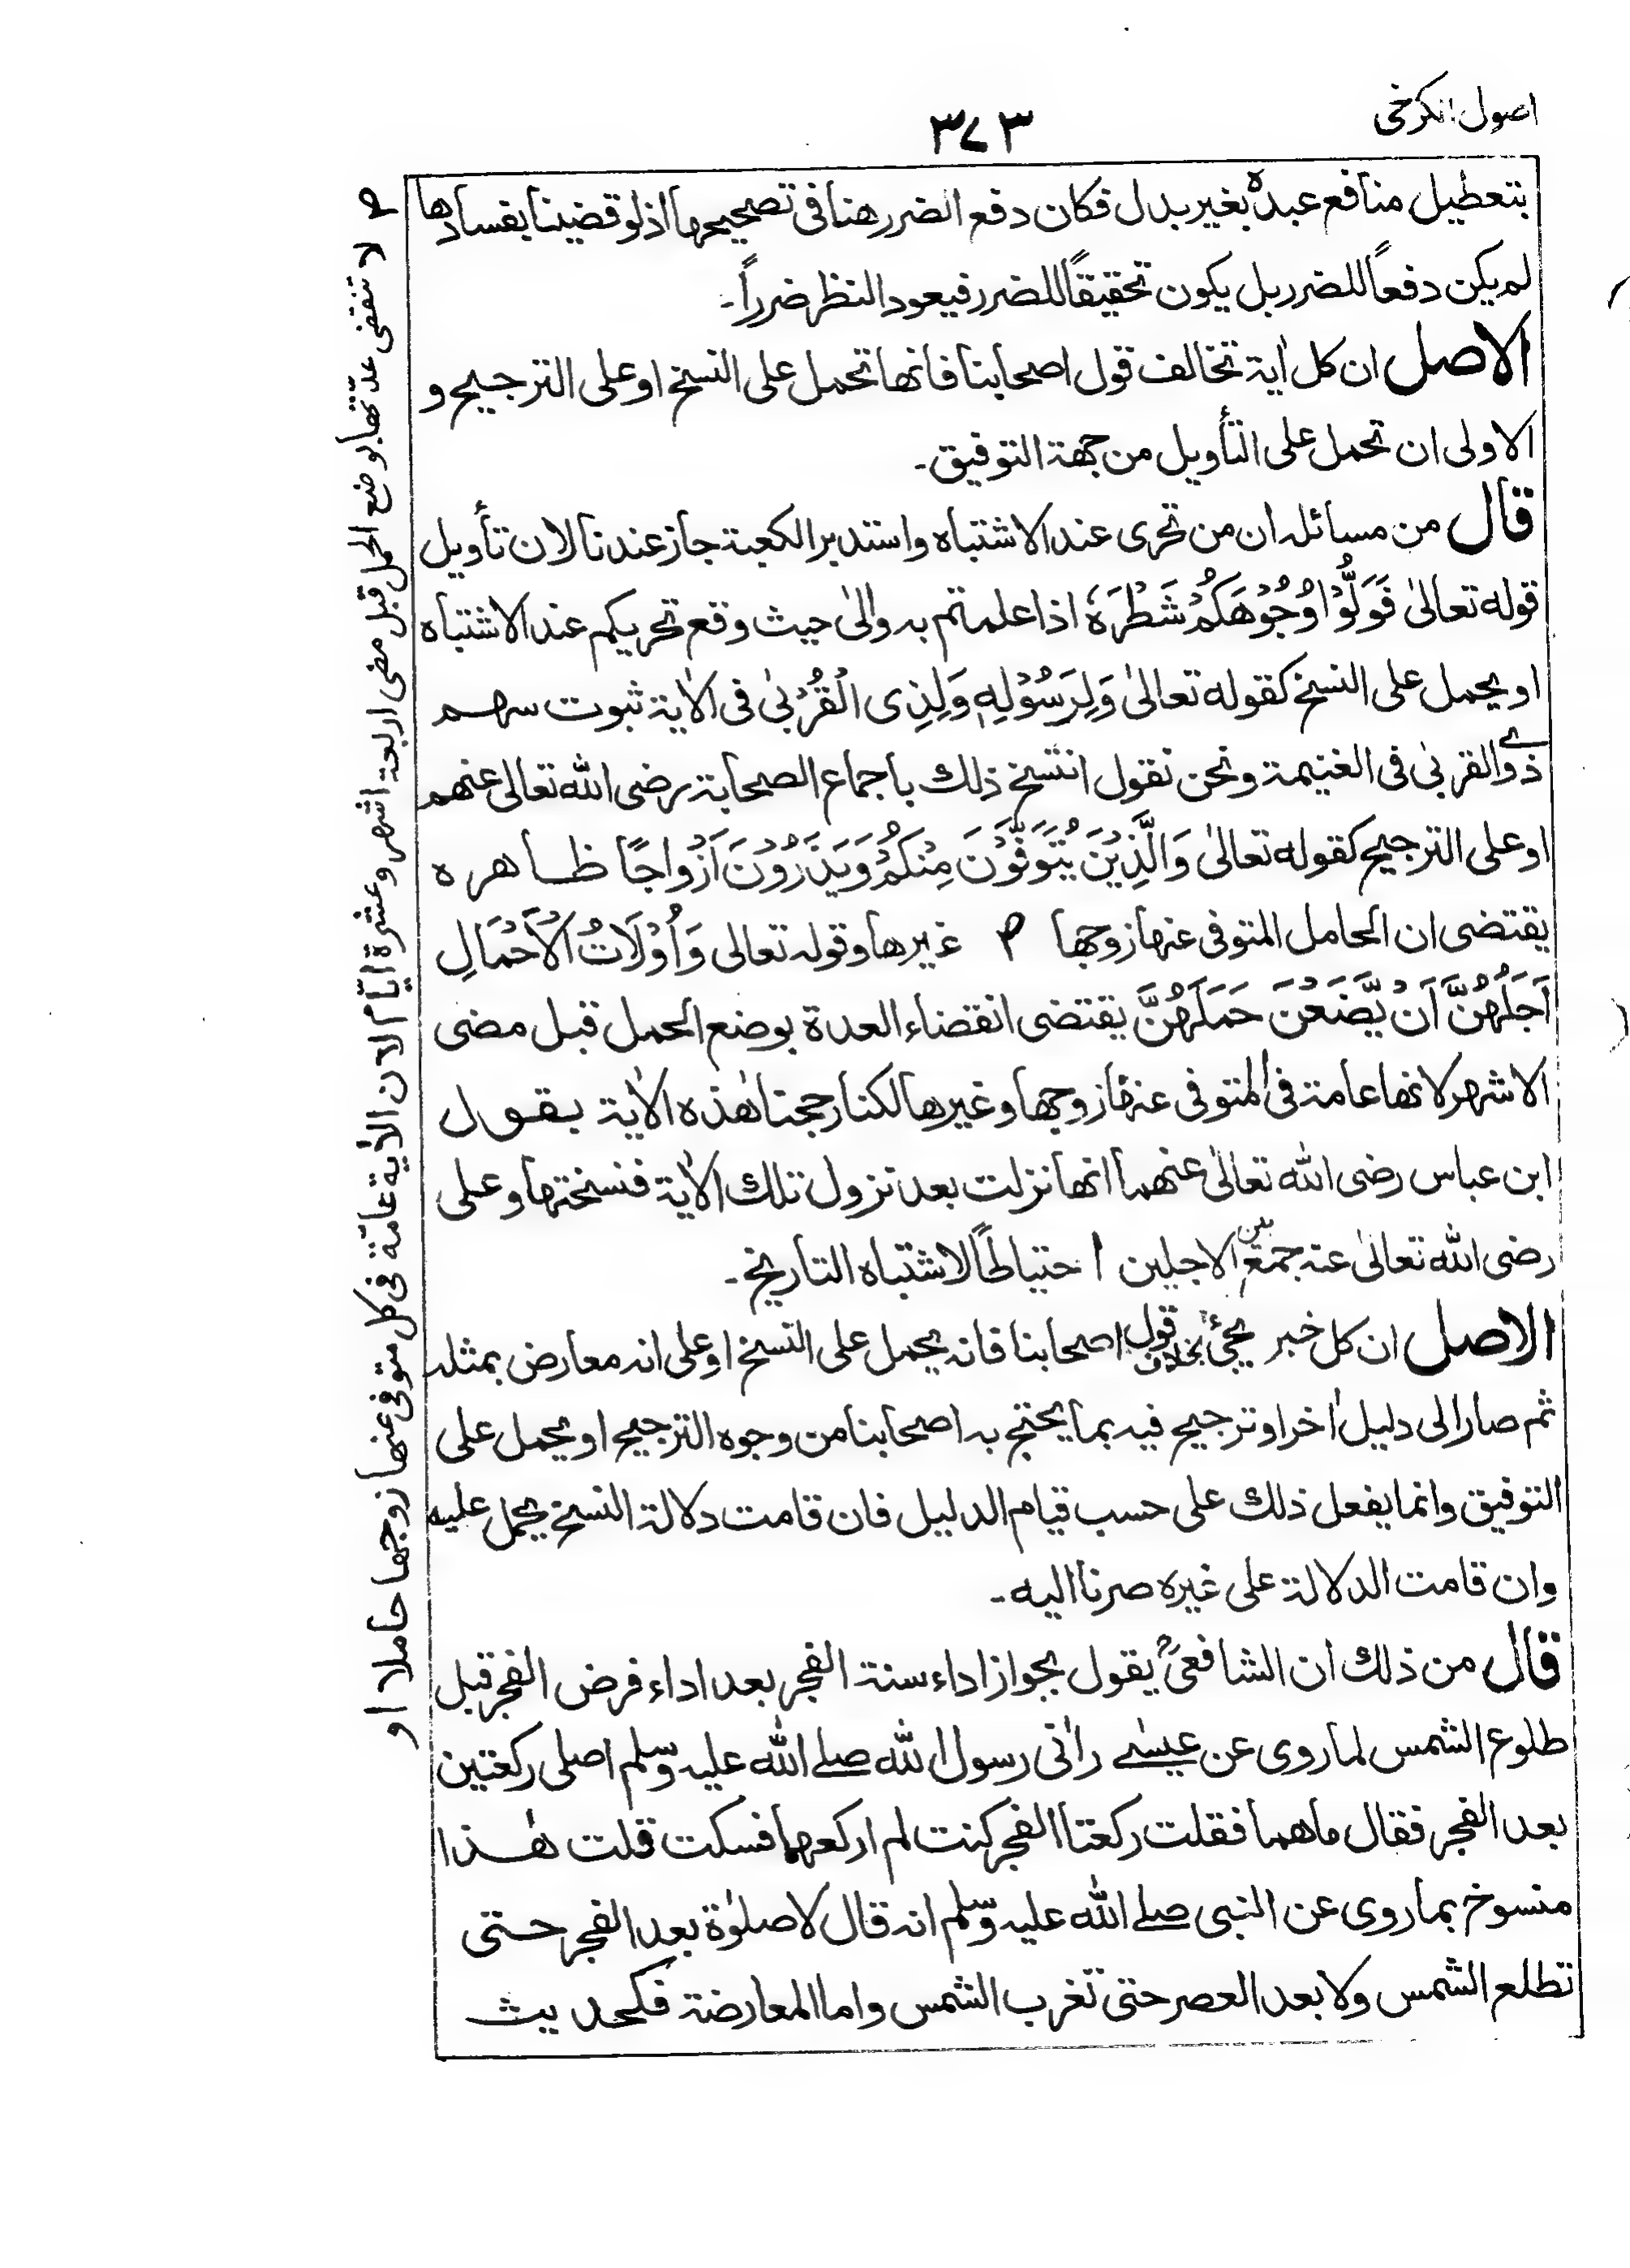 اصول الكرخى
٣٧٣
بتعطيل منافع عبده بغير بدل فكان دفع الضرر هنا فى تصحيحها اذ لو قضينا بفسادها
لم يكن دفعاً للضرر بل يكون تحقيقاً للضرر فيعود النظر ضرراً۔
الاصل ان كل اٰية تخالف قول اصحابنا فانها تحمل على النسخ او على الترجيح و
الاولى ان تحمل على التأويل من جهة التوفيق۔
قال من مسائله ان من تحرى عند الاشتباه واستدبر الكعبة جاز عندنا لان تأويل
قوله تعالىٰ فَوَلُّوْا وُجُوْهَكُمْ شَطْرَهٗ اذا علمتم به والىٰ حيث وقع تحريكم عند الاشتباه
او يحمل على النسخ كقوله تعالىٰ وَلِرَسُوْلِهٖ وَلِذِى الْقُرْبىٰ فى الاٰية ثبوت سهم
ذوے القربىٰ فى الغنيمة ونحن نقول انتسخ ذلك باجماع الصحابة رضى الله تعالى عنهم
او على الترجيح كقوله تعالىٰ وَالَّذِيْنَ يُتَوَفَّوْنَ مِنْكُمْ وَيَذَرُوْنَ اَزْوَاجًا ظاهره
يقتضى ان الحامل المتوفى عنها زوجها ٢ غيرها وقوله تعالى وَاُوْلَاتُ الْاَحْمَالِ
اَجَلُهُنَّ اَنْ يَّضَعْنَ حَمَلَهُنَّ يقتضى انقضاء العدة بوضع الحمل قبل مضى
الاشهر لانها عامة فى المتوفى عنها زوجها وغيرها لكنا رجحنا هٰذه الاٰية بقول
ابن عباس رضى الله تعالىٰ عنهما انها نزلت بعد نزول تلك الاٰية فنسختها وعلى
رضى الله تعالىٰ عنه جمع بين الاجلين احتياطاً لاشتباه التاريخ۔
الاصل ان كل خبر يجئ بخلاف قول اصحابنا فانه يحمل على النسخ او على انه معارض بمثله
ثم صار الى دليل اٰخر او ترجيح فيه بما يحتج به اصحابنا من وجوه الترجيح او يحمل على
التوفيق وانما يفعل ذلك على حسب قيام الدليل فان قامت دلالة النسخ يحمل عليه
وان قامت الدلالة على غيره صرنا اليه۔
قال من ذلك ان الشافعىؒ يقول بجواز اداء سنة الفجر بعد اداء فرض الفجر قبل
طلوع الشمس لما روى عن عيسٰے رأنى رسول الله صلے الله عليه وسلم اصلى ركعتين
بعد الفجر فقال ماهما فقلت ركعتا الفجر كنت لم اركعهما فسكت قلت هٰذا
منسوخ بما روى عن النبى صلے الله عليه وسلم انه قال لا صلوٰة بعد الفجر حتى
تطلع الشمس ولا بعد العصر حتى تغرب الشمس واما المعارضة فكحديث
٢ لا تنقضى عدّتها بوضع الحمل قبل مضى اربعة اشهر وعشرة ايّام لان الاٰية عامّة فى كل متوفى عنها زوجها حاملا او